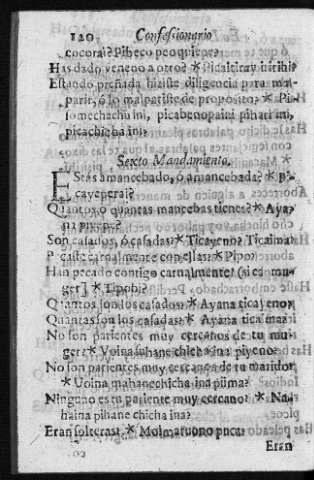 120. Confessionario
cocora? Pibeco peoquiere?
Has dado veneno a otro? * Picalciray inichi?
Estando preñada hiziste diligencia para mal-
parir, ò lo malpariste de proposito? * Pi-
somechachi ini, picabenopaini pihari ini,
picachicha ini?
Sexto Mandamiento.
EStàs amancebado, ò amancebada? * pi-
cayeperai?
Quantos, ò quantas mancebas tienes? * Aya-
na
Son casados, ò casadas? * Ticayeno? Ticaima?
Pecaste carnalmente con ellas? * Pipo?
Han pecado contigo carnalmente? (si es mu-
ger] * Tipobi?
Quantos son los casados? * Ayana ticayeno?
Quantas son las casadas? * Ayana ticaima?
No son parientes muy cercanos de tu mu-
ger? * Voina mahane chicha ina piyeno?
No son parientes muy cercanos de tu marido?
* Voina mahanechicha ina piima?
Ninguno es tu pariente muy cercano? * Na-
haina pihane chicha ina?
Eran solteras? * Molmasuono pnca?
co Eran